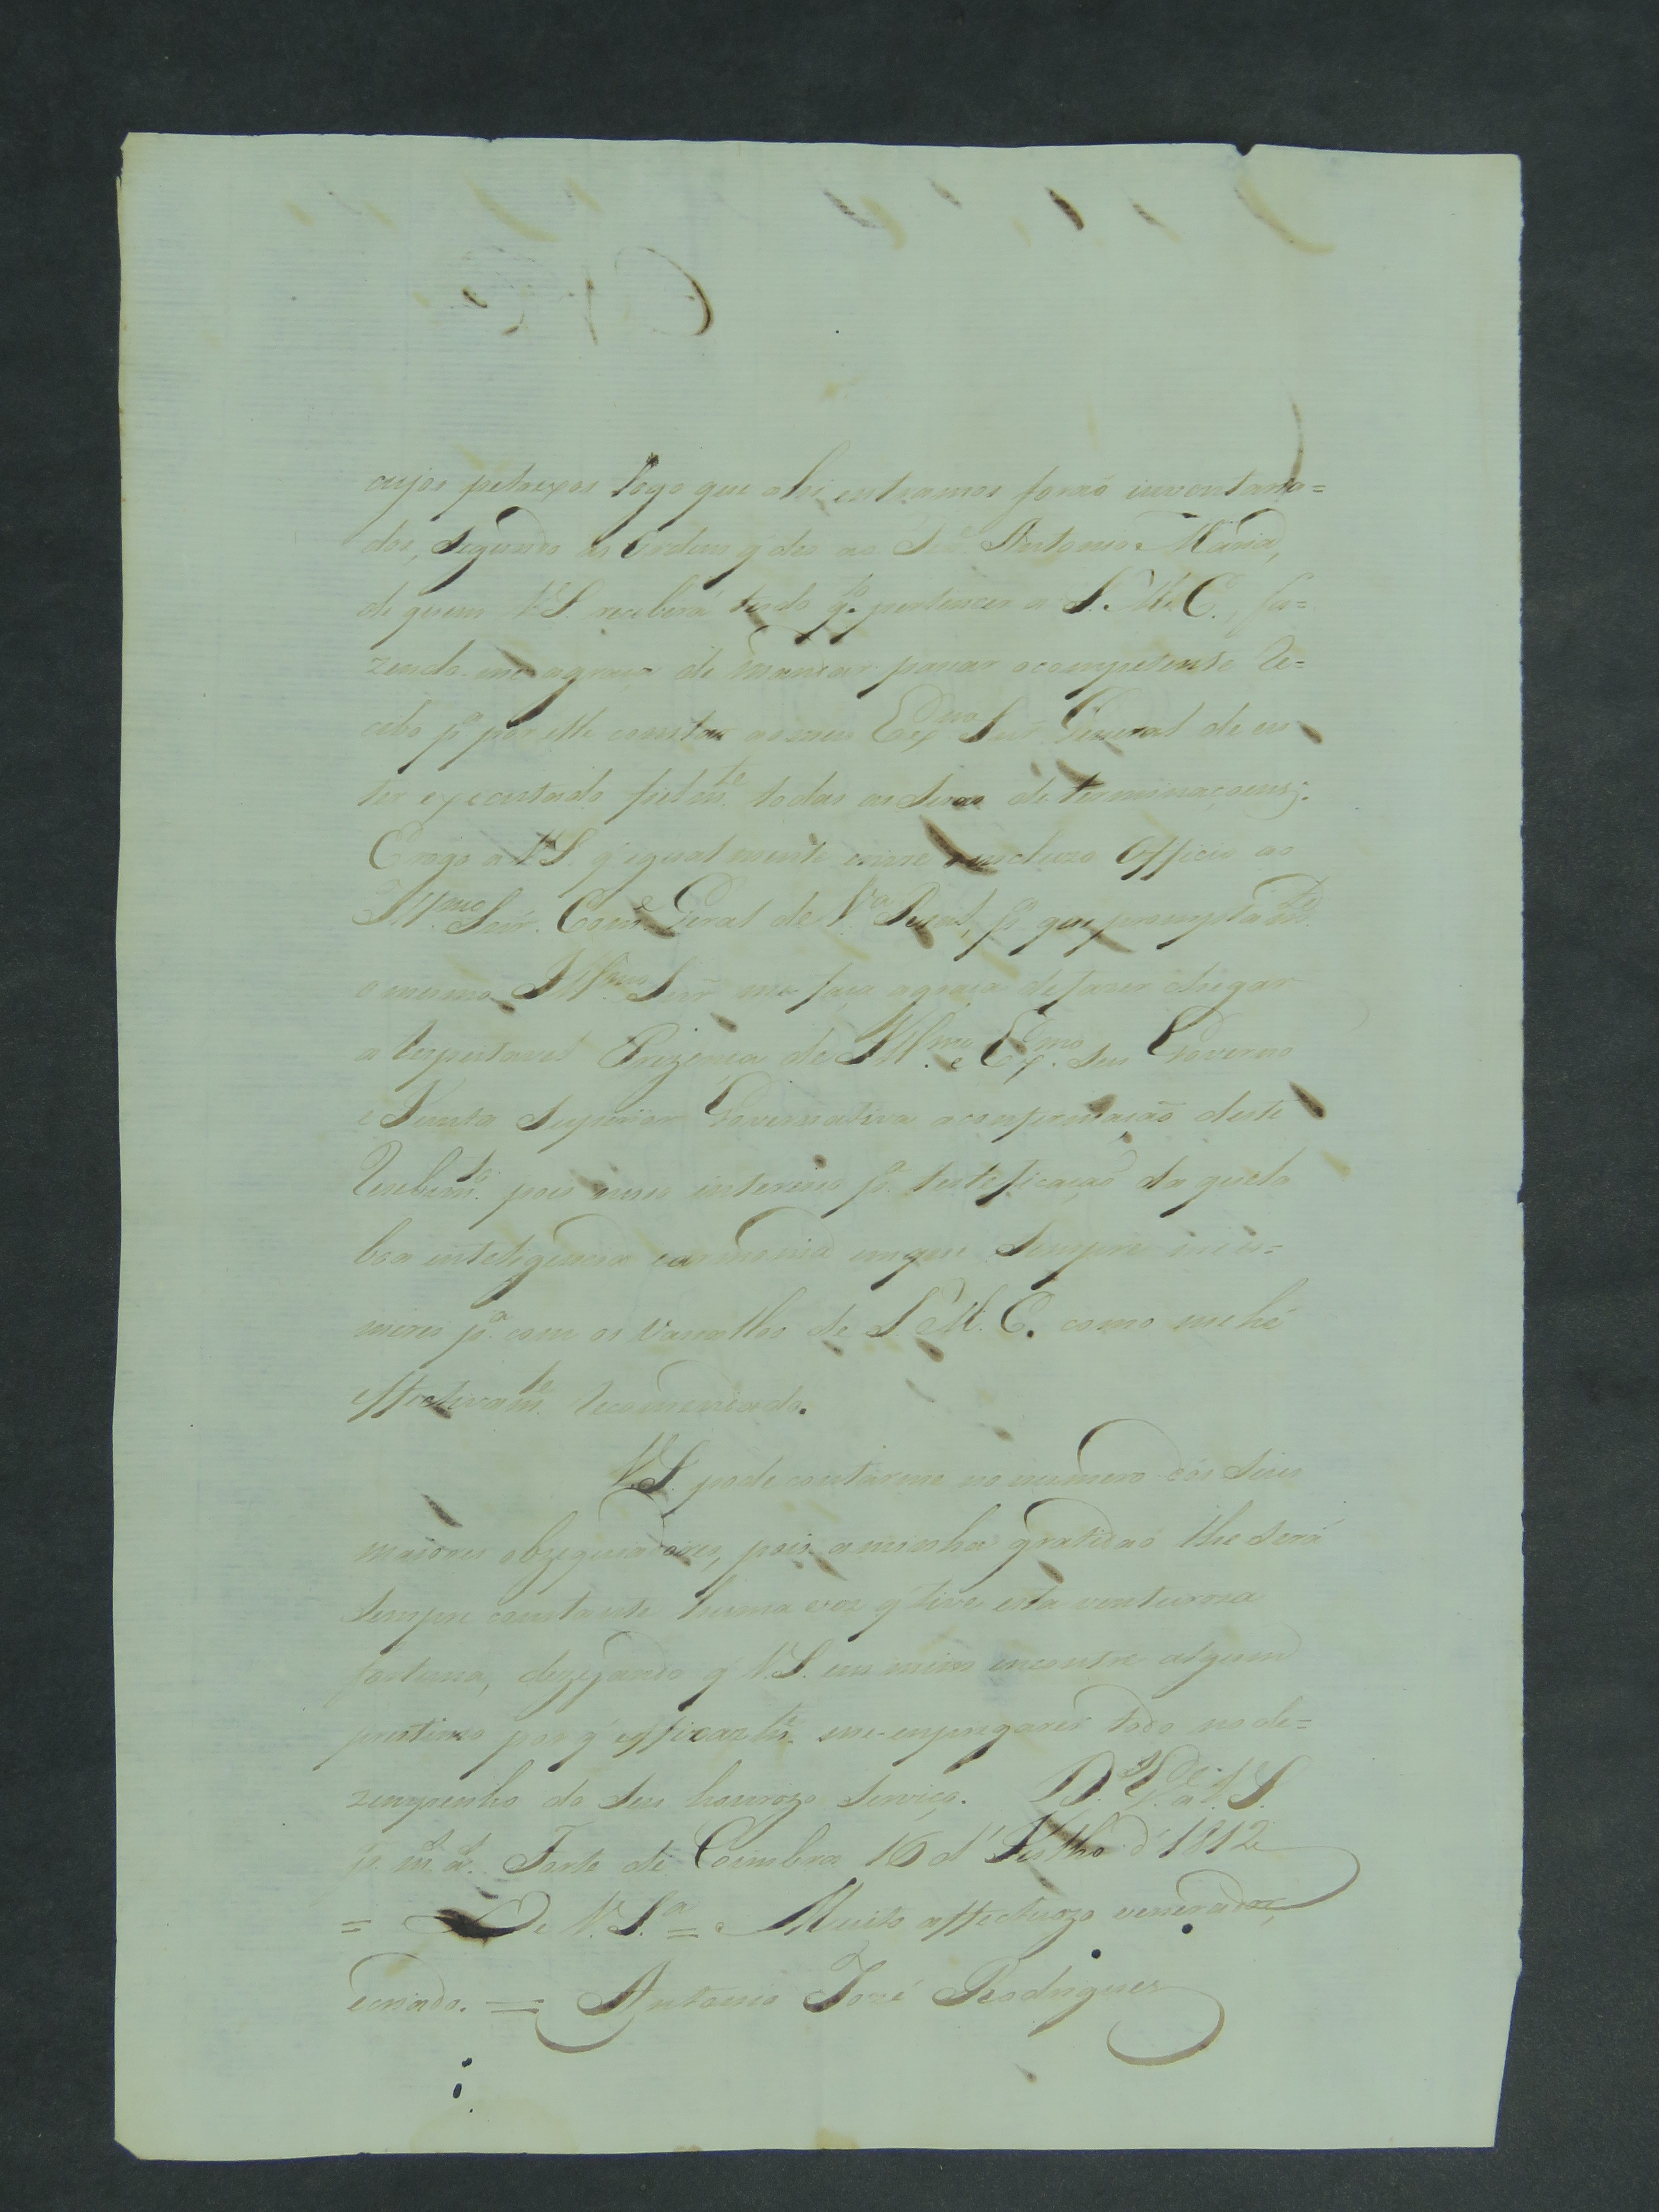 cujos petrexos logo que ahi entramos foraõ inventaria=
dos, segundo as Ordens q' deo ao Senr. Antonio Maria,
de quem V.S. receberá tudo q.to pertencer a S. M. C., fa=
zendo-me agraça de mandar passar ocompetente Re=
cibo p.a por elle constar ao meu Ex.mo Snr. General de eu
ter executado fielm.te todas as suas determinaçoens;
E rogo a V.S. q' igual mente envie o incluzo Officio ao
Ill.mo Snr. Com.e Geral de V.a Real, p.a que promptam.te
o mesmo Ill.mo Snr. me faça agraça defazer chegar
a respeitavel Prezença do Ill.mo e Ex.mo Seu Governo
e Junta Superior Governativa a confirmaçaõ deste
Recebim.to pois nisso intereço p.a testeficaçaõ da quela
boa inteligencia earmonia emque sempre
p.a com os Vassallos de S. M. C. como me hé
effectivam.te recomendado.
V.S. pode contarme no numero dos Seus
maiores obzequiadores, pois aminha gratidaõ lhe Será
Sempre constante huma vez q' tive esta venturoza
fortuna, dezejando q' V.S. em mim encontre algum
prestimo por q' efficazm.te me-empregarei todo no de=
zempenho do Seu honrozo Serviço. D.s G.de a V.S.
p.r m.s a.s Forte de Coimbra 16 d'Julho d' 1812
= De V. S.a = Muito affectuozo venerador,
ecriado. = Antonio José Rodrigues